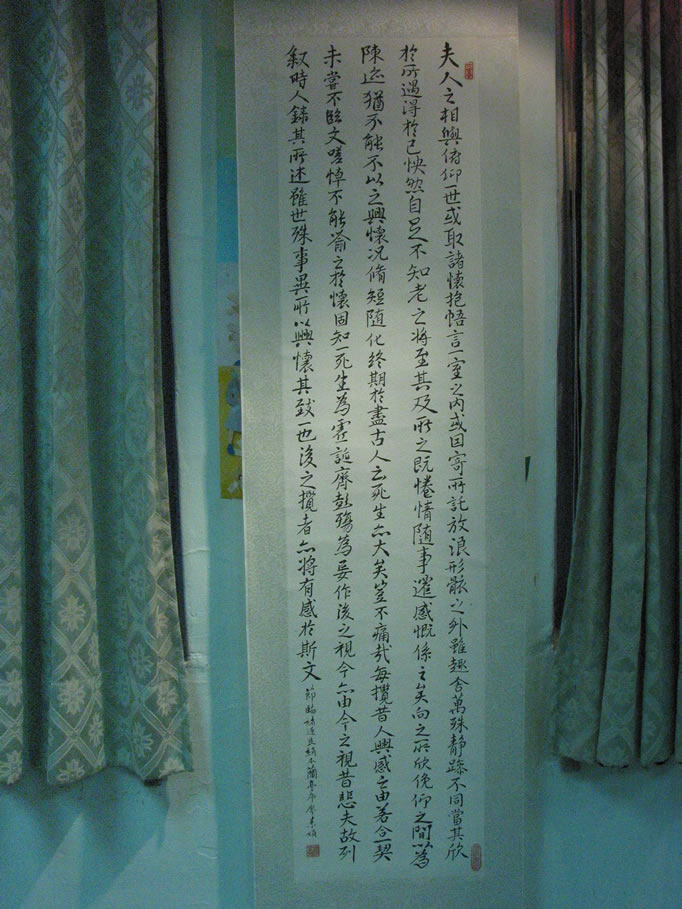 夫人之相與俯仰一世或取諸懷抱悟言一室之內或因寄所託放浪形骸之外雖趣舍萬殊靜躁不同當其欣
於所遇得於己怏然自足不知老之將至其及所之既惓情隨事遷感慨係之矣向之所欣俛仰之間以為
陳迹猶不能不以之興懷况脩短隨化終期於盡古人云死生亦大矣豈不痛哉每攬昔人興感之由若合一契
未嘗不臨文嗟悼不能喻之於懷固知一死生為虛誕齊彭殤為妄作後之視今亦由今之視昔悲夫故列
叙時人錄其所述雖世殊事異所以興懷其致一也後之攬者亦將有感於斯文
節臨褚遂良絹本蘭亭序